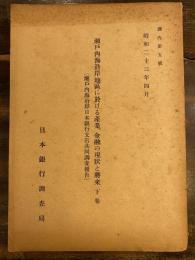 調内第五號
昭和二十三年四月
瀬戸内海沿岸地區に於ける産業、金融の現狀と將來 下巻
(瀬戸内海沿岸日本銀行支店共同調査報告)
日本銀行調査局